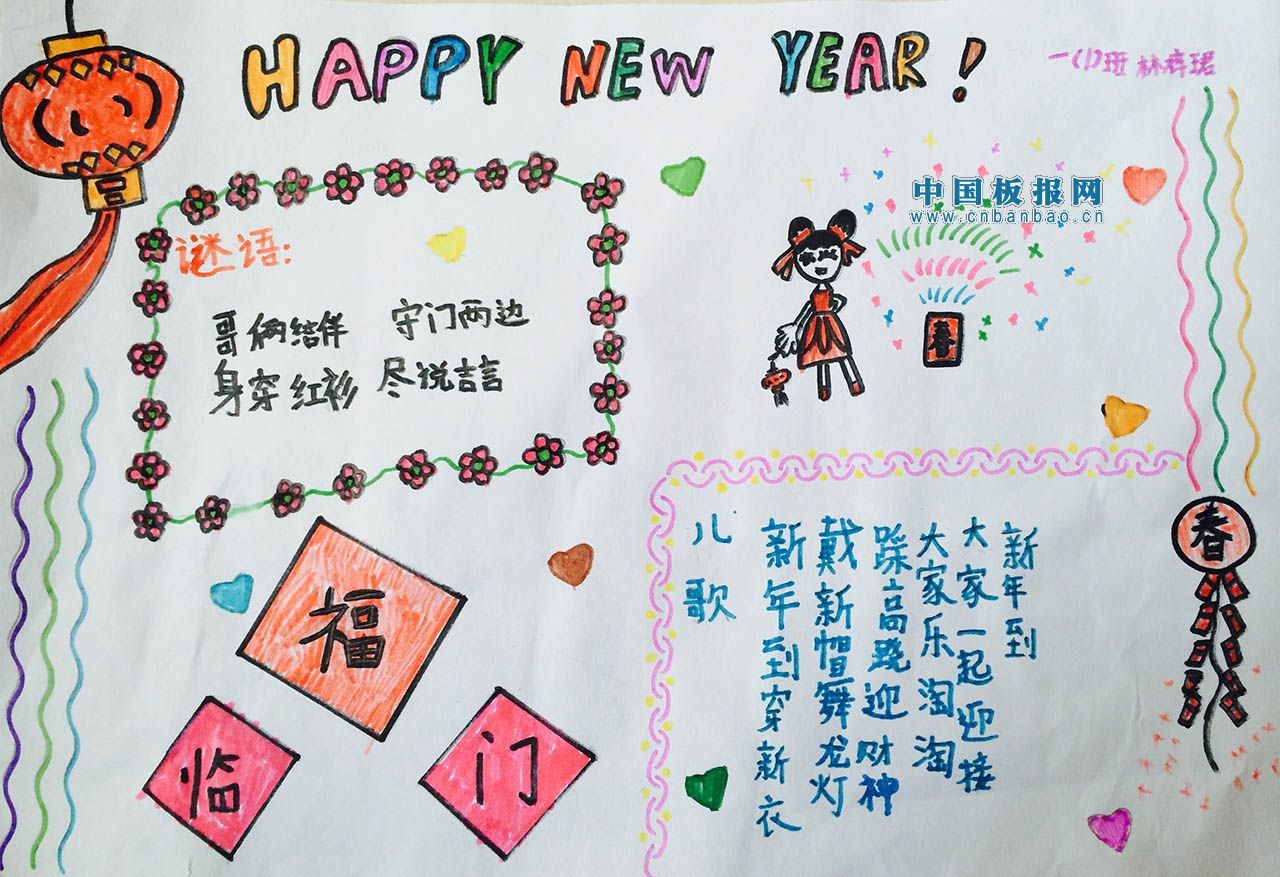 HAPPY NEW YEAR!
一(1)班 林
中国板报网
www.cnbanbao.cn
谜语:
哥俩结伴 守门两边
身穿红衫 尽说吉言
春
福
临
门
儿歌
新年到穿新衣
戴新帽舞龙灯
踩高跷迎财神
大家乐淘淘
大家一起迎接
新年到
春